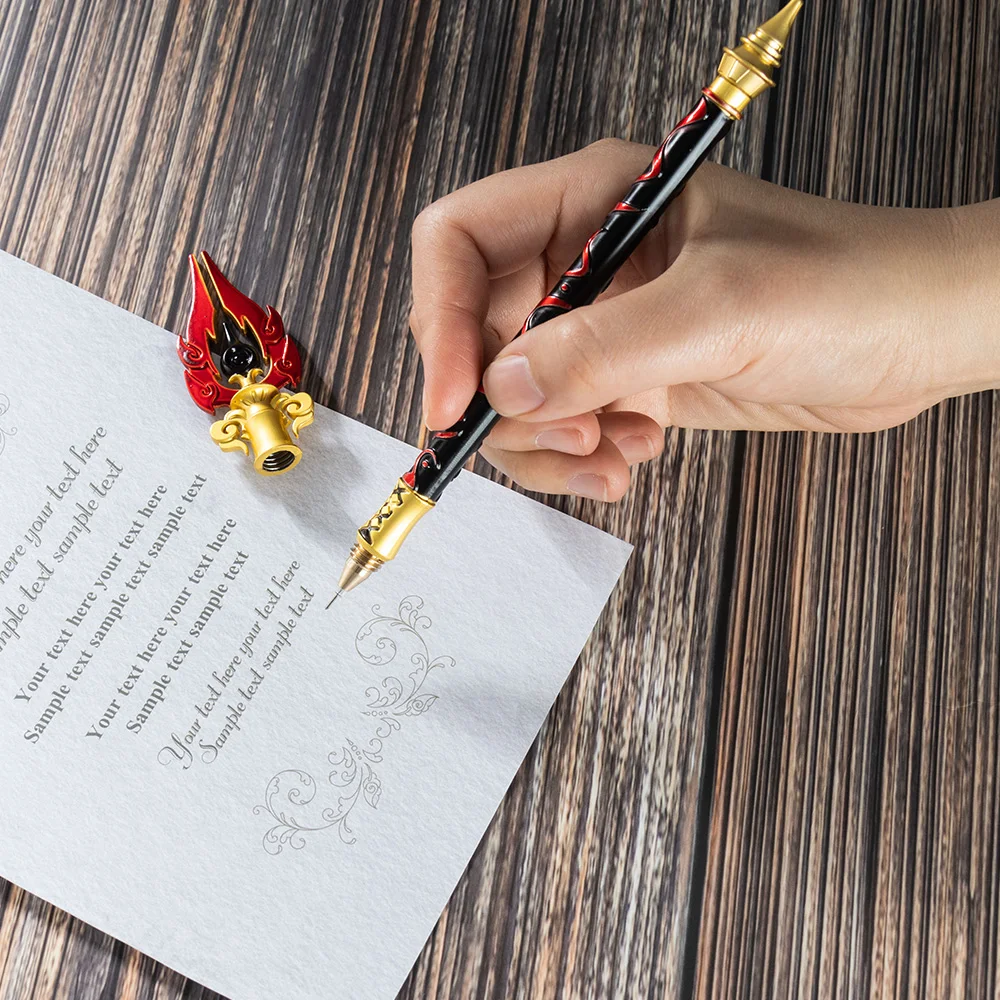 here your text here
mple text sample text
Your text here your text here
Sample text sample text sample text
Your text here your text here
Sample text sample text
Your text here your text here
Sample text sample text